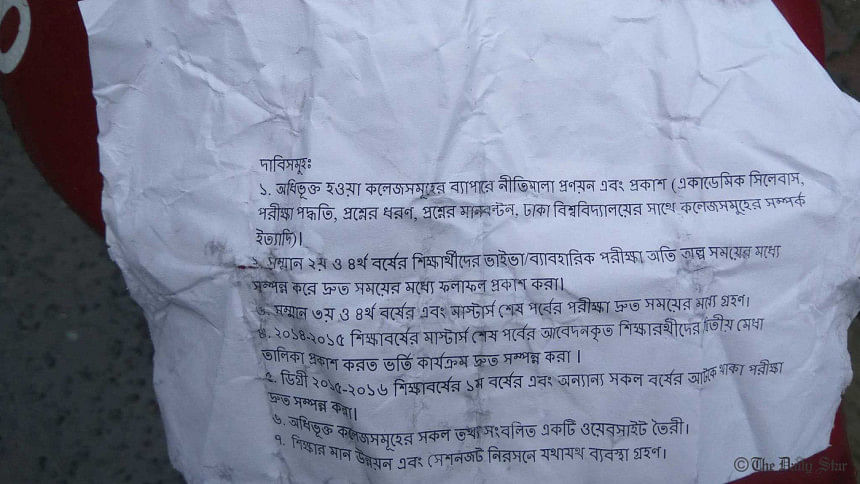 দাবিসমূহঃ
১. অধিভূক্ত হওয়া কলেজসমূহের ব্যাপারে নীতিমালা প্রনয়ন এবং প্রকাশ (একাডেমিক সিলেবাস,
পরীক্ষা পদ্ধতি, প্রশ্নের ধরন, প্রশ্নের মানবন্টন, ঢাকা বিশ্ববিদ্যালয়ের সাথে কলেজসমূহের সম্পর্ক
ইত্যাদি)।
সম্মান ২য় ও ৪র্থ বর্ষের শিক্ষার্থীদের ভাইভা/ব্যাবহারিক পরীক্ষা অতি অল্প সময়ের মধ্যে
সম্পন্ন করে দ্রুত সময়ের মধ্যে ফলাফল প্রকাশ করা।
৩. সম্মান ৩য় ও ৪র্থ বর্ষের এবং মাস্টার্স শেষ পর্বের পরীক্ষা দ্রুত সময়ের মধ্যে গ্রহন।
৪. ২০১৪-২০১৫ শিক্ষাবর্ষের মাস্টার্স শেষ পর্বের আবেদনকৃত শিক্ষার্থীদের দ্বিতীয় মেধা
তালিকা প্রকাশ করত ভর্তি কার্যক্রম দ্রুত সম্পন্ন করা ।
৫. ডিগ্রী ২০১৫-২০১৬ শিক্ষাবর্ষের ১ম বর্ষের এবং অন্যান্য সকল বর্ষের আটকে থাকা পরীক্ষা
দ্রুত সম্পন্ন করা।
৬. অধিভূক্ত কলেজসমূহের সকল তথ্য সংবলিত একটি ওয়েবসাইট তৈরী।
৭. শিক্ষার মান উন্নয়ন এবং সেশনজট নিরসনে যথাযথ ব্যবস্থা গ্রহন।
© The Daily Star